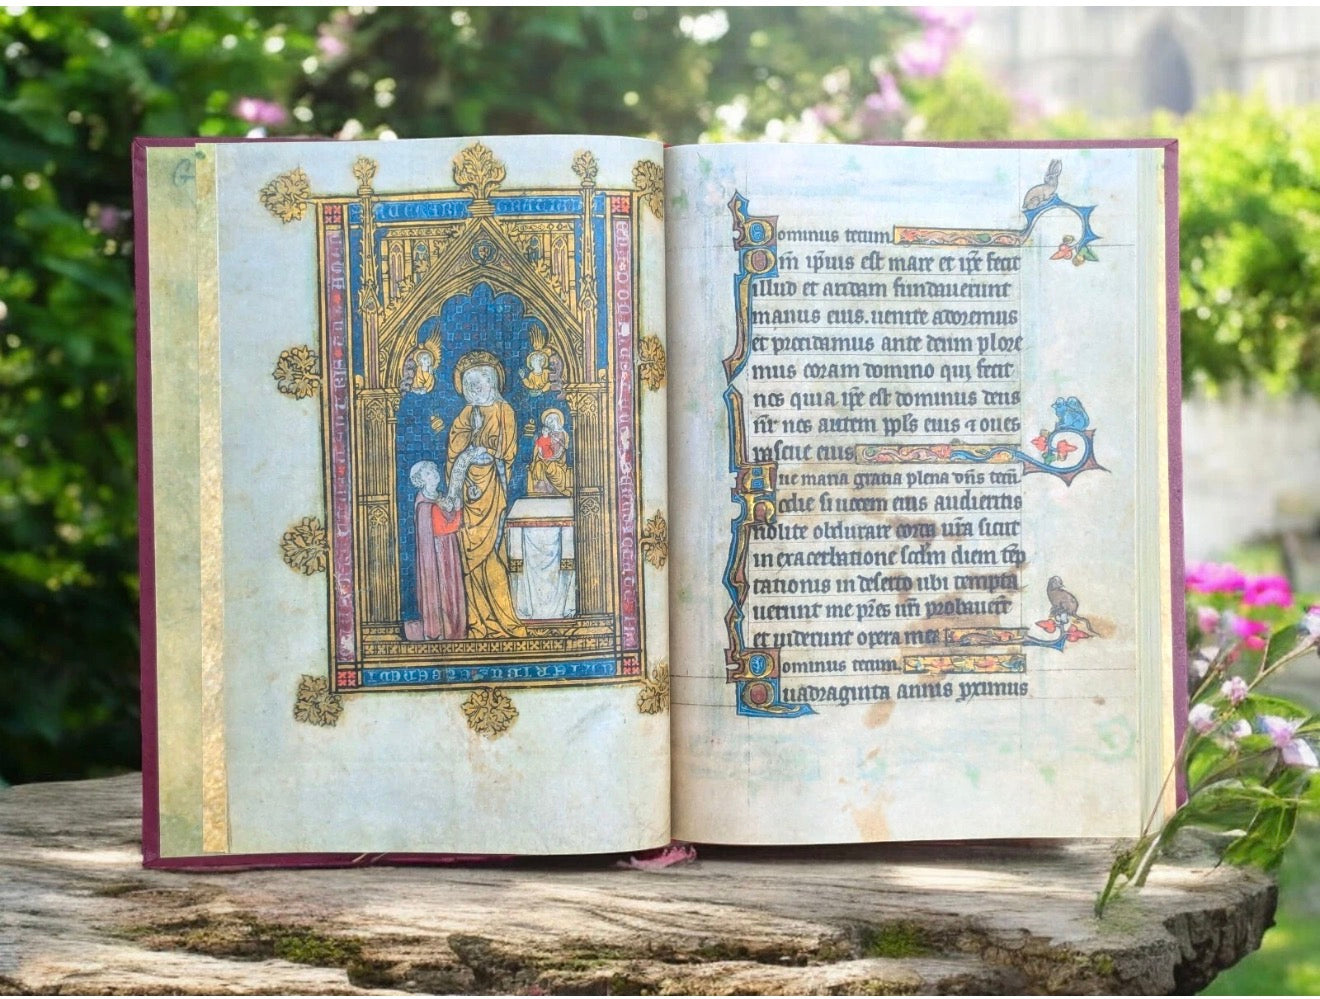 Dominus tecum
Qm ipsius est mare et ipe fecit
illud et aridam fundauerunt
manus eius. uenite adoremus
et procidamus ante deum plore
mus coram domino qui fecit
nos quia ipe est dominus deus
nr nos autem ppls eius ⁊ oues
pascue eius
Aue maria gratia plena dns tecu
Hodie si uocem eius audieritis
nolite obdurare corda ura sicut
in exacerbatione scdm diem tep
tationis in deserto ubi tempta
uerunt me pres uri probauert
et uiderunt opera mea
Dominus tecum
Quadraginta annis pximus